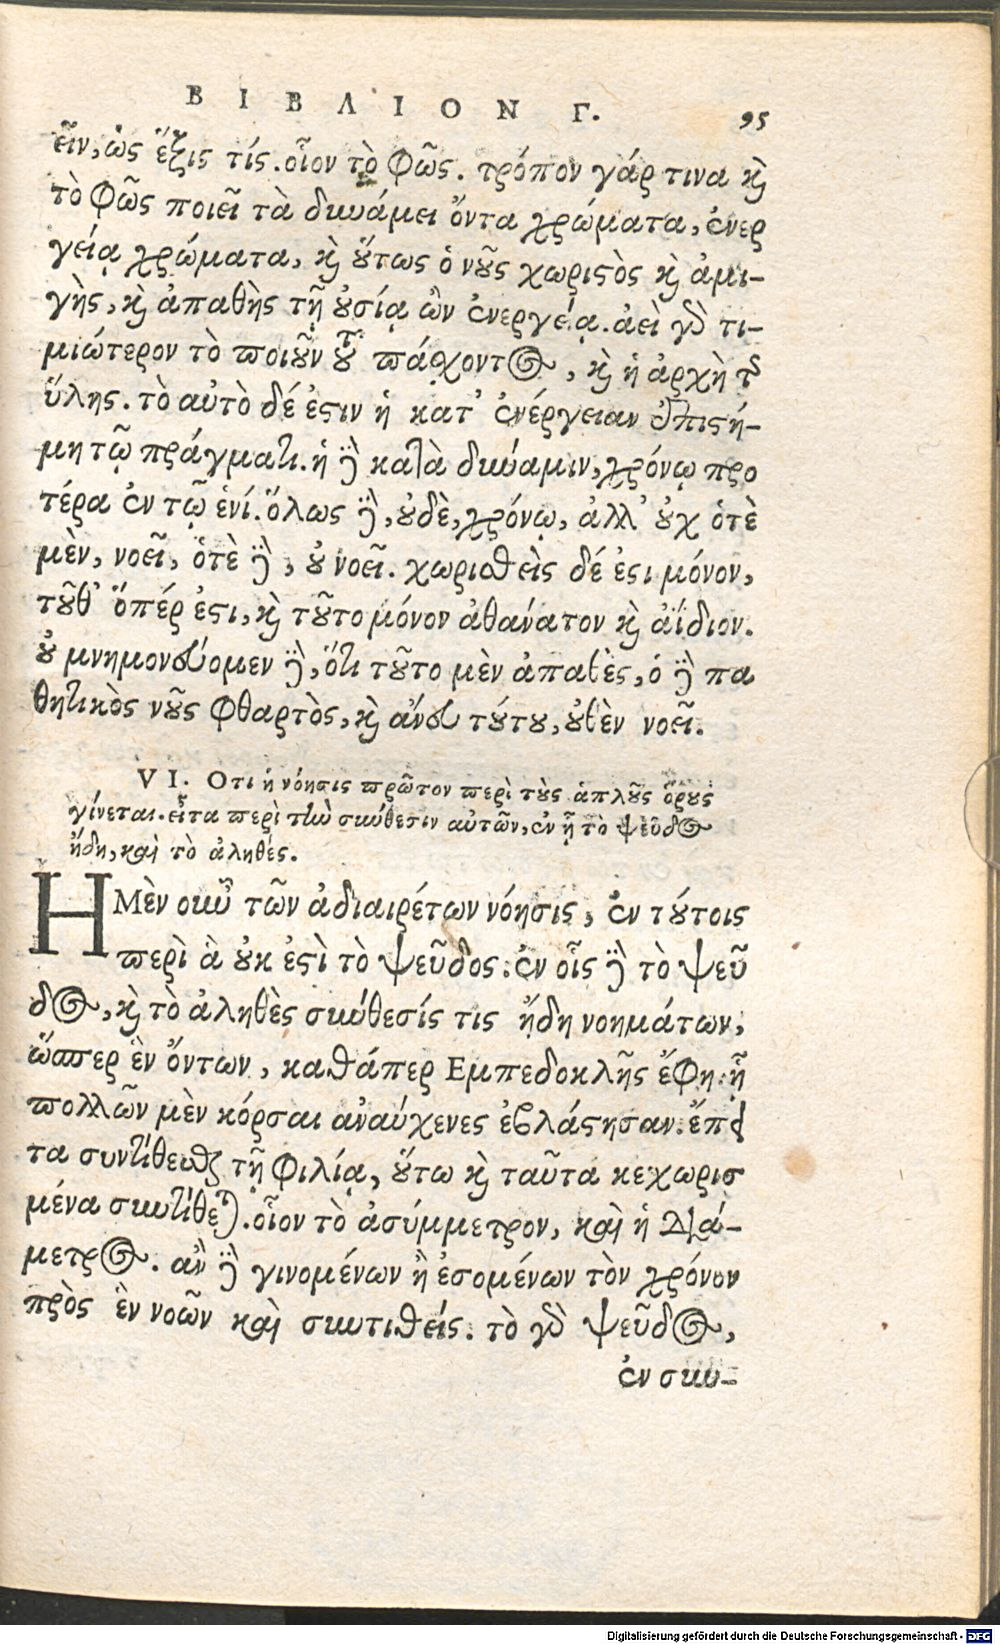 ΒΙΒΛΙΟΝ Γ. 95
εῖν, ὡς ἕξις τίς. οἷον τὸ φῶς. τρόπον γάρ τινα καὶ
τὸ φῶς ποιεῖ τὰ δυνάμει ὄντα χρώματα, ἐνερ
γείᾳ χρώματα, καὶ οὕτως ὁ νοῦς χωριστὸς καὶ ἀμι-
γὴς, καὶ ἀπαθὴς τῇ οὐσίᾳ ὢν ἐνεργείᾳ. ἀεὶ γὰρ τι-
μιώτερον τὸ ποιοῦν τοῦ πάσχοντος, καὶ ἡ ἀρχὴ τῆς
ὕλης. τὸ αὐτὸ δέ ἐστιν ἡ κατ' ἐνέργειαν ἐπιστή-
μη τῷ πράγματι. ἡ δὲ κατὰ δύναμιν, χρόνῳ προ
τέρα ἐν τῷ ἑνί. ὅλως δὲ, οὐδὲ, χρόνῳ, ἀλλ' οὐχ ὁτὲ
μὲν, νοεῖ, ὁτὲ δὲ, οὐ νοεῖ. χωρισθεὶς δέ ἐστι μόνον,
τοῦθ' ὅπέρ ἐστι, καὶ τοῦτο μόνον ἀθάνατον καὶ ἀΐδιον.
οὐ μνημονεύομεν δὲ, ὅτι τοῦτο μὲν ἀπαθὲς, ὁ δὲ πα
θητικὸς νοῦς φθαρτὸς, καὶ ἄνευ τούτου, οὐθὲν νοεῖ.
VI. Οτι ἡ νόησις πρῶτον περὶ τοὺς ἁπλοῦς ὅρους
γίνεται. εἶτα περὶ τὴν σύνθεσιν αὐτῶν, ἐν ᾗ τὸ ψεῦδος
ἤδη, καὶ τὸ ἀληθές.
Η Μὲν οὖν τῶν ἀδιαιρέτων νόησις, ἐν τούτοις
περὶ ἃ οὐκ ἐστὶ τὸ ψεῦδος. ἐν οἷς δὲ τὸ ψεῦ
δος, καὶ τὸ ἀληθὲς σύνθεσίς τις ἤδη νοημάτων,
ὥσπερ ἓν ὄντων, καθάπερ Εμπεδοκλῆς ἔφη. ᾗ
πολλῶν μὲν κόρσαι ἀναύχενες ἐβλάστησαν. ἔπει
τα συντίθεσθαι τῇ φιλίᾳ, οὕτω καὶ ταῦτα κεχωρισ
μένα συντίθεται. οἷον τὸ ἀσύμμετρον, καὶ ἡ διά-
μετρος. ἂν δὲ γινομένων ἢ ἐσομένων τὸν χρόνον
πρὸς ἓν νοῶν καὶ συντιθείς. τὸ γὰρ ψεῦδος,
ἐν συν-
Digitalisierung gefördert durch die Deutsche Forschungsgemeinschaft - DFG